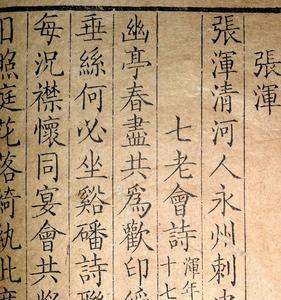 張渾
張渾清河人永州刺史
七老會詩 渾年
十七
幽亭春盡共爲歡印綬
垂絲何必坐谿磻詩聯
每況襟懷同宴會共將
日照庭花落綺紈此席